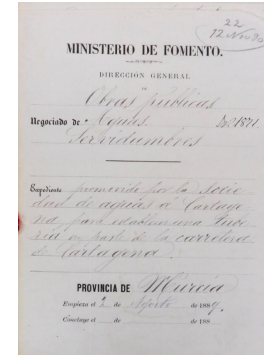 22
12 Nov 90
MINISTERIO DE FOMENTO.
DIRECCIÓN GENERAL
DE
Obras públicas
Negociado de Aguas. 1871.
Servidumbres
Expediente promovido por la Socie
dad de aguas á Cartage
na para establecer una tube
ría en parte de la carretera
de Cartagena
PROVINCIA DE Murcia
Empieza el 2 de Agosto de 1889.
Concluye el de de 188